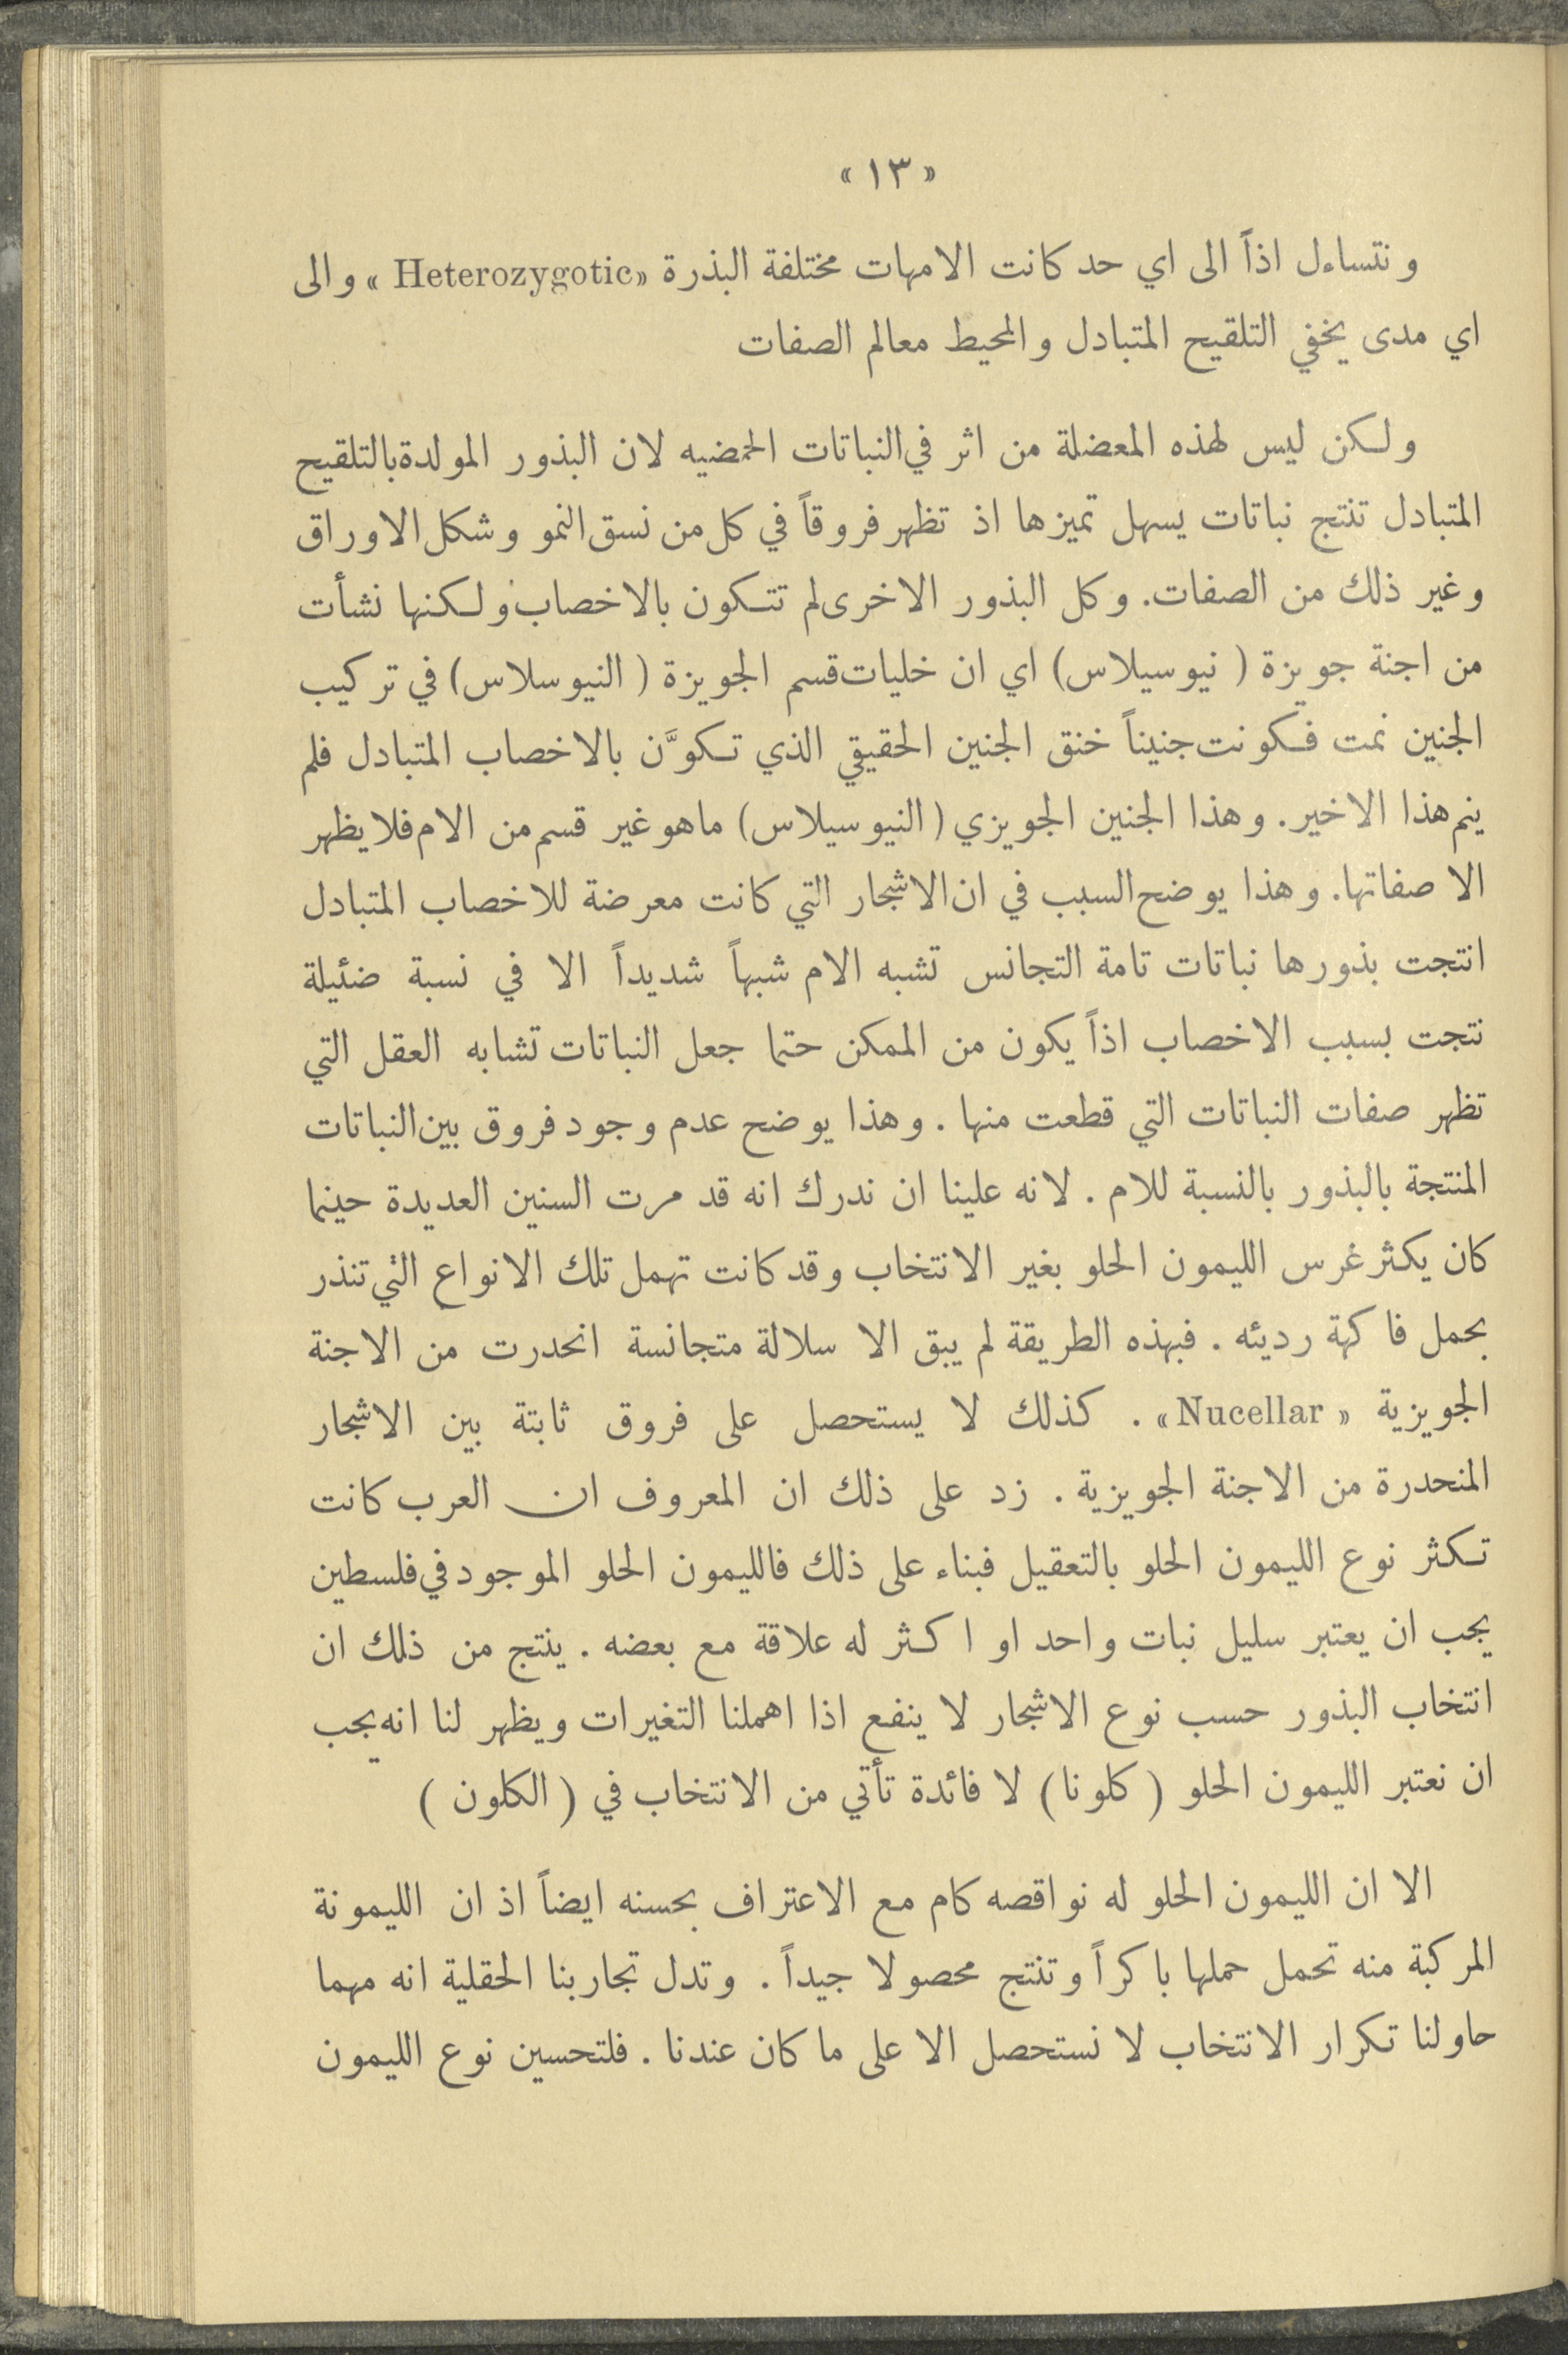 « ١٣ »
ونتساءل اذاً الى اي حد كانت الامهات مختلفة البذرة «Heterozygotic» والى
اي مدى يخفي التلقيح المتبادل والمحيط معالم الصفات
ولكن ليس لهذه المعضلة من اثر في النباتات الحمضيه لان البذور المولدة بالتلقيح
المتبادل تنتج نباتات يسهل تميزها اذ تظهر فروقاً في كل من نسق النمو وشكل الاوراق
وغير ذلك من الصفات. وكل البذور الاخرى لم تتكون بالاخصاب ولكنها نشأت
من اجنة جويزة ( نيوسيلاس) اي ان خليات قسم الجويزة ( النيوسلاس) في تركيب
الجنين نمت فكونت جنيناً خنق الجنين الحقيقي الذي تكوَّن بالاخصاب المتبادل فلم
ينم هذا الاخير. وهذا الجنين الجويزي (النيوسيلاس) ماهو غير قسم من الام فلا يظهر
الا صفاتها. وهذا يوضح السبب في ان الاشجار التي كانت معرضة للاخصاب المتبادل
انتجت بذورها نباتات تامة التجانس تشبه الام شبهاً شديداً الا في نسبة ضئيلة
نتجت بسبب الاخصاب اذاً يكون من الممكن حتما جعل النباتات تشابه العقل التي
تظهر صفات النباتات التي قطعت منها . وهذا يوضح عدم وجود فروق بين النباتات
المنتجة بالبذور بالنسبة للام . لانه علينا ان ندرك انه قد مرت السنين العديدة حينما
كان يكثر غرس الليمون الحلو بغير الانتخاب وقد كانت تهمل تلك الانواع التي تنذر
بحمل فاكهة رديئه . فبهذه الطريقة لم يبق الا سلالة متجانسة انحدرت من الاجنة
الجويزية « Nucellar» . كذلك لا يستحصل على فروق ثابتة بين الاشجار
المنحدرة من الاجنة الجويزية . زد على ذلك ان المعروف ان العرب كانت
تكثر نوع الليمون الحلو بالتعقيل فبناء على ذلك فالليمون الحلو الموجود في فلسطين
يجب ان يعتبر سليل نبات واحد او اكثر له علاقة مع بعضه . ينتج من ذلك ان
انتخاب البذور حسب نوع الاشجار لا ينفع اذا اهملنا التغيرات ويظهر لنا انه يجب
ان نعتبر الليمون الحلو ( كلونا) لا فائدة تأتي من الانتخاب في ( الكلون )
الا ان الليمون الحلو له نواقصه كام مع الاعتراف بحسنه ايضاً اذ ان الليمونة
المركبة منه تحمل حملها باكراً وتنتج محصولا جيداً . وتدل تجاربنا الحقلية انه مهما
حاولنا تكرار الانتخاب لا نستحصل الا على ما كان عندنا . فلتحسين نوع الليمون